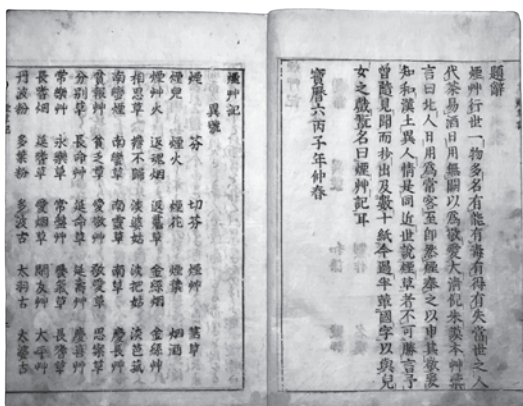 題辭
煙艸行世一物多名有能有毒有得有失當世之人
代茶易酒日用無闕以為敬愛大濟倪朱謨本艸彙
言曰北人日用為常客至即然煙奉之以申其敬愛
知和漢土異人情是同近世說煙草者不可勝言予
曾隨見聞而抄出及數十紙今過半譯國字以與兒
女之戲覧名曰煙艸記耳
寶曆六丙子年仲春
煙艸記
異號
煙 芬 切芬 煙艸 菸草
煙兒 煙火 煙花 煙葉 烟酒
煙艸火 返魂烟 返魂草 金絲烟 金絲艸
相思草 痞不歸 淡婆姑 淡把姑 淡芭菰
南蠻煙 南蠻草 南靈草 南草 慶長艸
貧報艸 貧乏草 愛敬艸 敬愛草 思案草
分別草 長命艸 延命草 延齡艸 慶喜艸
常樂艸 永樂草 常盤艸 養氣草 長壽草
長壽烟 延壽草 愛烟草 朋友艸 太平艸
丹波粉 多葉粉 多波古 太羽古 太婆古